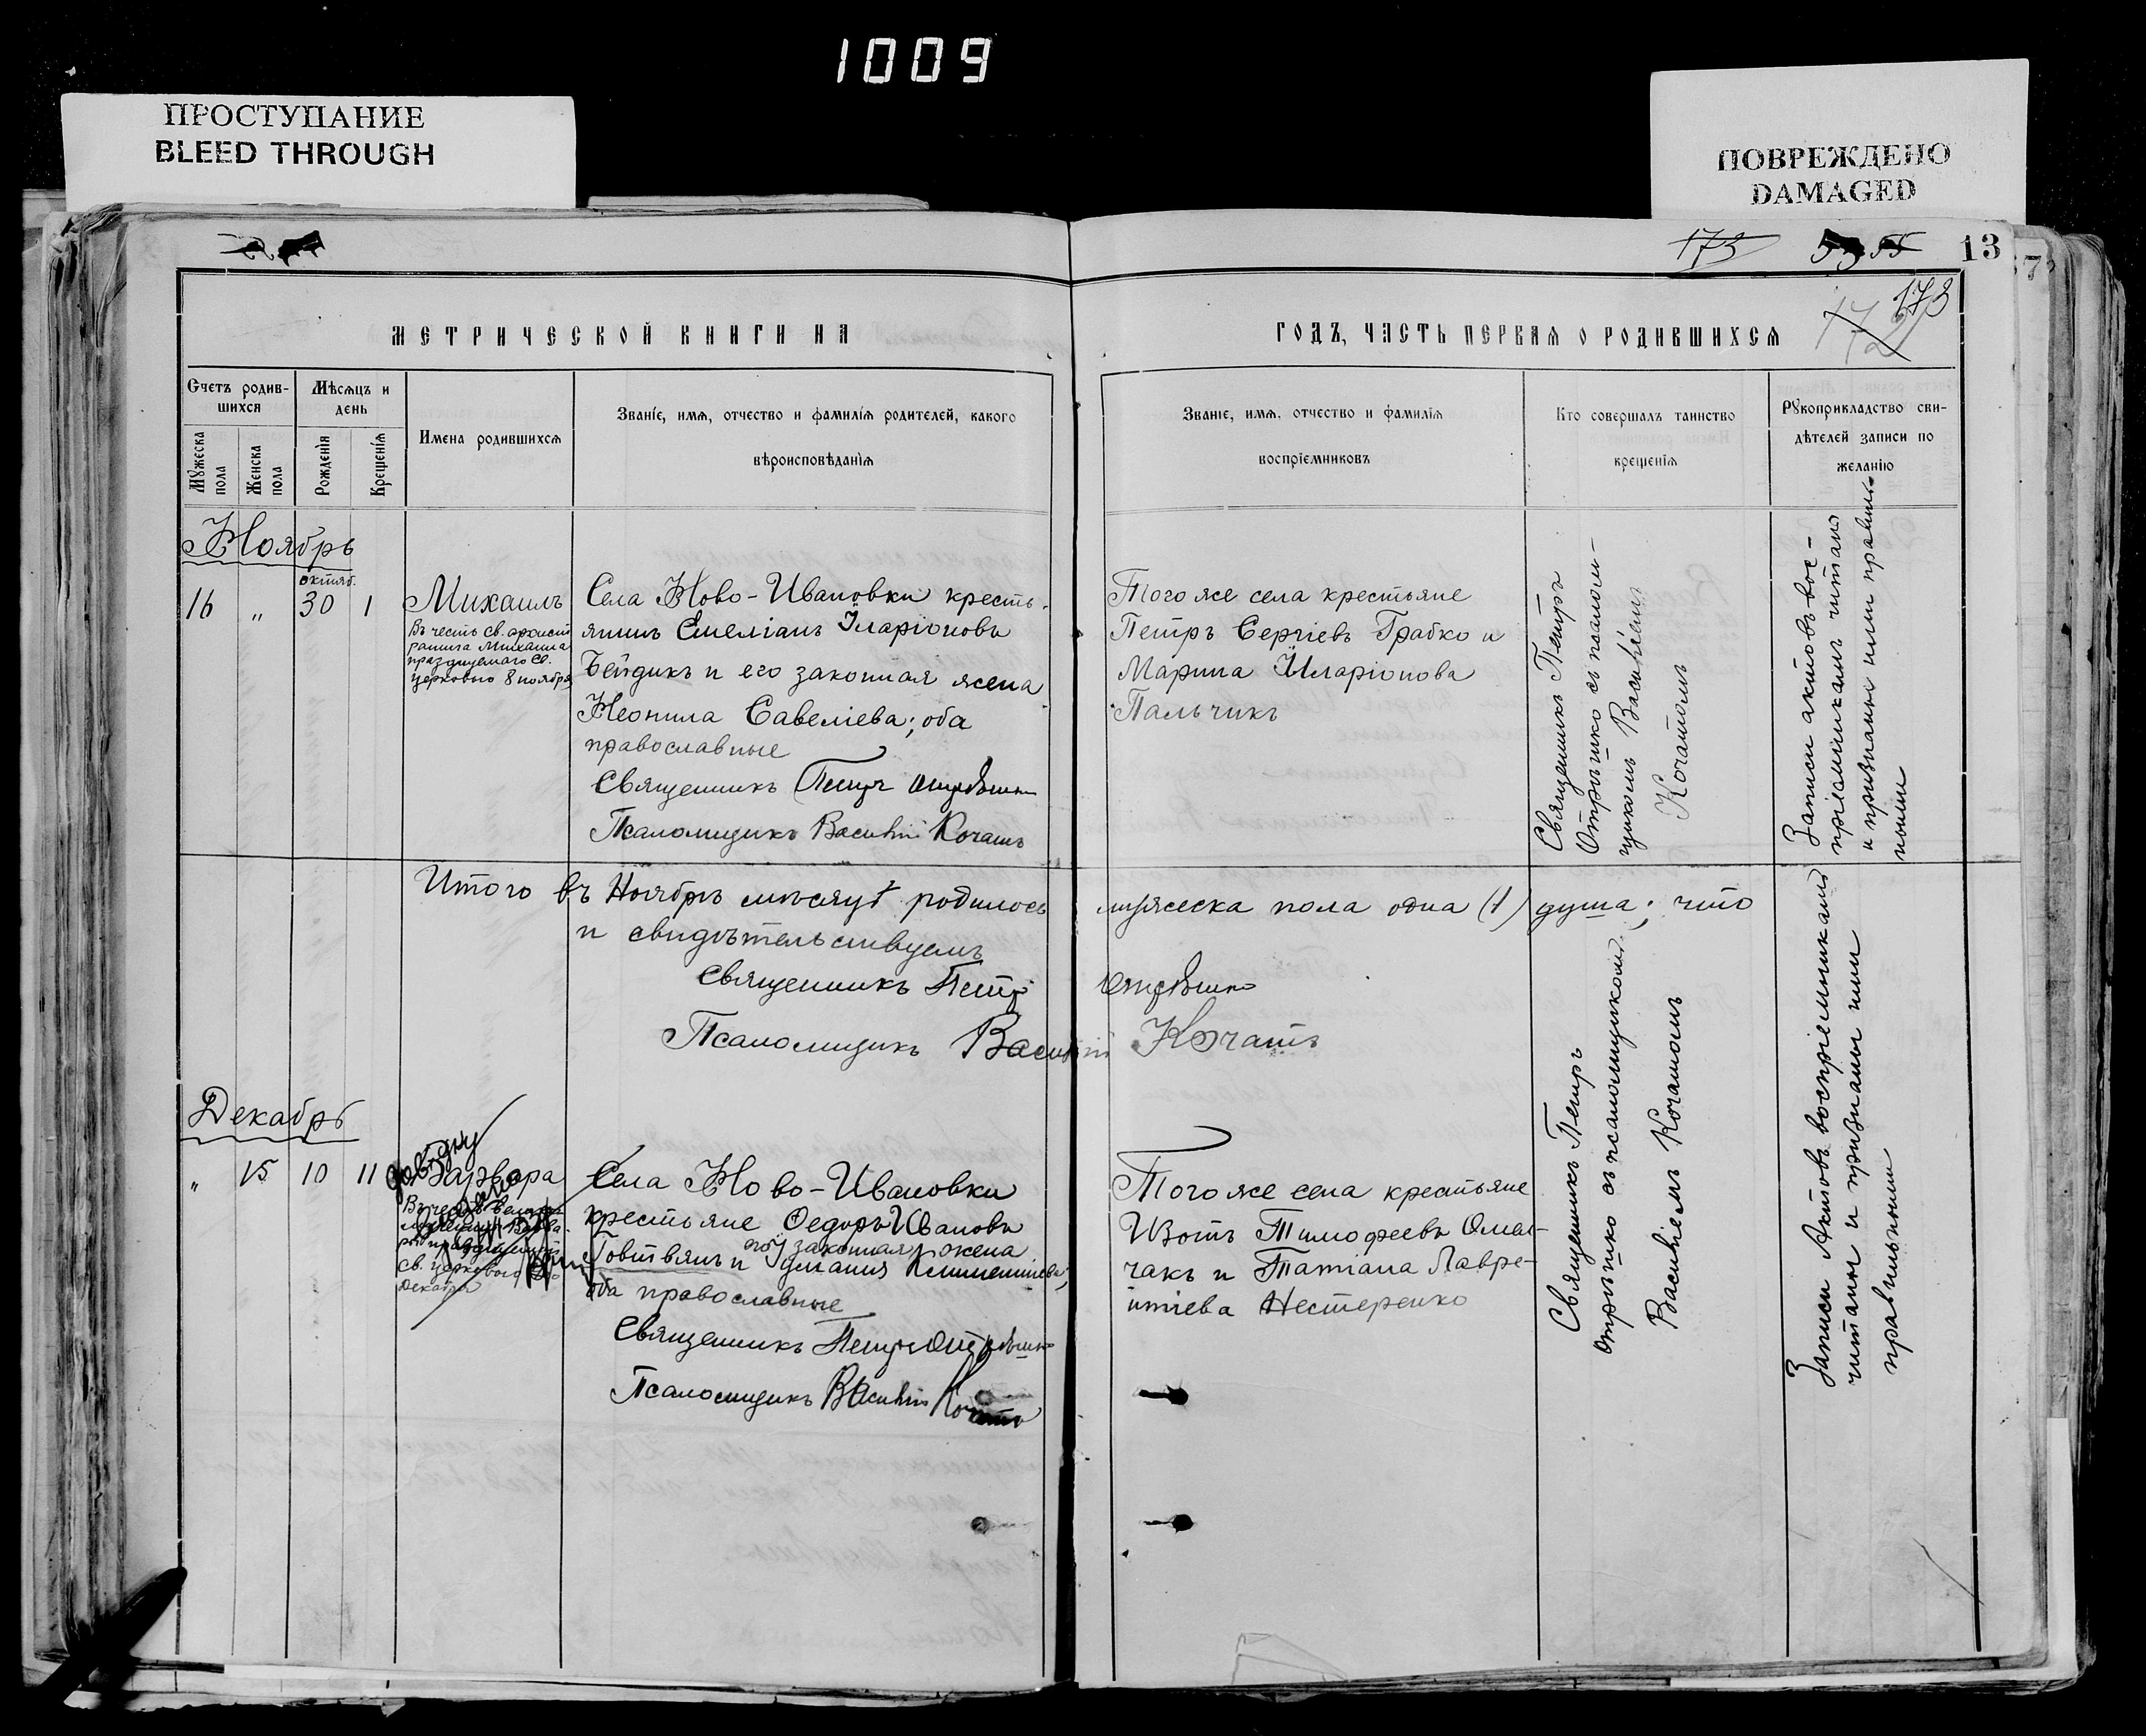 1009
ПРОСТУПАНИЕ
BLEED THROUGH
ПОВРЕЖДЕНО
DAMAGED
173
55
13
7
173
172
МЕТРИЧЕСКОЙ КНИГИ НА
ГОДЪ, ЧАСТЬ ПЕРВАЯ О РОДИВШИХСЯ
Счетъ родив-
шихся
Мѣсяцъ и
день
Мужеска
пола
Женска
пола
Рожденія
Крещенія
Имена родившихся
Званіе, имя, отчество и фамилія родителей, какого
вѣроисповѣданія
Званіе, имя, отчество и фамилія
воспріемниковъ
Кто совершалъ таинство
крещенія
Рукоприкладство сви-
дѣтелей записи по
желанію
Ноябрь
октяб.
16 „ 30 1
Михаилъ
Въ честь св. архист
ратига Михаила
празднуемаго св.
церковью 8 ноября
Села Ново-Ивановки кресть-
янинъ Емеліанъ Иларіоновъ
Бейдикъ и его законная жена
Неонила Савеліева; оба
православные
Священникъ Петръ Отрѣшко
Псаломщикъ Василій Кочатъ
Того же села крестьяне
Петръ Сергіевъ Грабко и
Марина Иларіонова
Пальчикъ
Священникъ Петръ
Отрѣшко съ псалом-
щикомъ Василіемъ
Кочатомъ
Записи актовъ вос-
пріемникамъ читаны
и признаны ими правиль-
ными
Итого въ Ноябрѣ мѣсяцѣ родилось мужеска пола одна (1) душа; что
и свидѣтельствуемъ
Священникъ Петръ Отрѣшко
Псаломщикъ Василій Кочатъ
Декабрь
„ 15 10 11
Варвара
Въ честь велико-
мученицы Варва-
ры празднуемой
св. церковью
Декабря
Села Ново-Ивановки
крестьяне Ѳедоръ Ивановъ
Говтвянъ и его законная жена
Климентіева;
оба православные
Священникъ Петръ Отрѣшко
Псаломщикъ Василій Кочатъ
Того же села крестьяне
Изотъ Тимофеевъ Омель-
чакъ и Татіана Лавре-
нтіева Нестеренко
Священникъ Петръ
Отрѣшко съ псаломщикомъ
Василіемъ Кочатомъ
Записи Актовъ воспріемникамъ
читаны и признаны ими
правильными